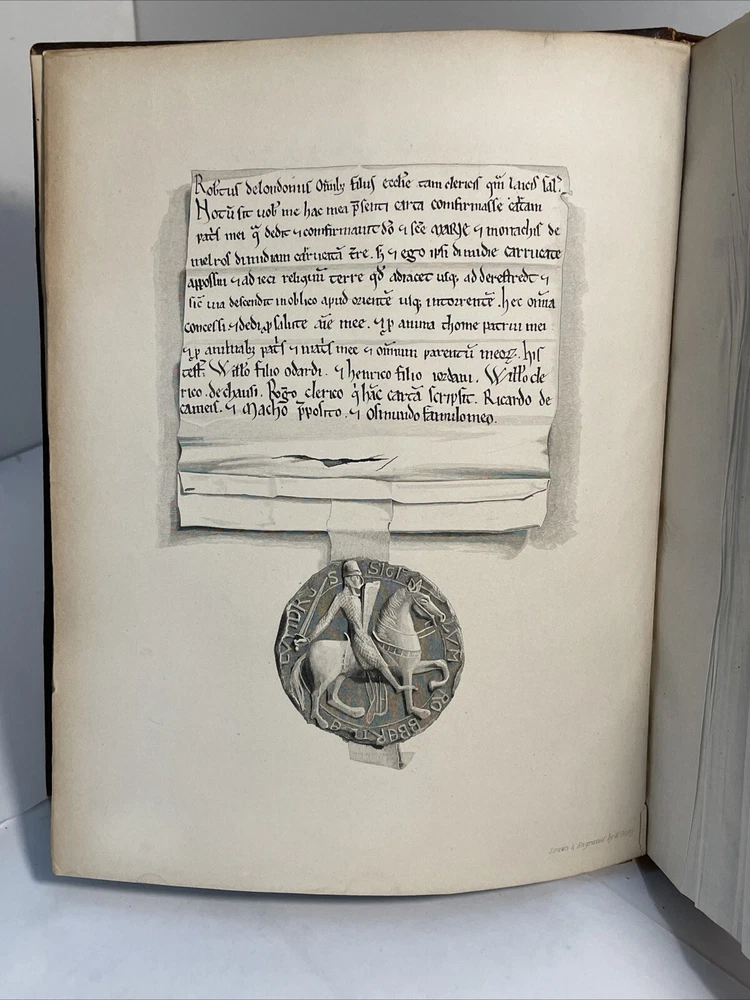 Robtus delondoniis Omib; filiis eccł'ie tam clericis qm laicis sal'.
Notū sit uob' me hac mea p̄senti carta confirmasse cartam
pat's mei q̄ dedit ⁊ confirmauit dō ⁊ sc̄e MARIE ⁊ monachis de
melros dimidiam carrucatā t're. ⁊ ego ipsi dimidie carrucate
apposui ⁊ adieci reliquū terre qd' adiacet usq; ad derestredt ⁊
sic̄ uia descendit in oblico apud orientē usq; in torrentē. hec om̄ia
concessi ⁊ dedi p salute aīe mee. ⁊ p anima thome patrui mei
⁊ p animab; pat's ⁊ mat's mee ⁊ omnium parentū meoꝝ. his
test'. Willo filio odardi. ⁊ henrico filio iordani. Willo cle
rico. de chausi. Rogo clerico q̇ hāc cartā scripsit. Ricardo de
cameis. ⁊ Macho p̄posito. ⁊ Osmundo famulo meo.
SIGI LVM ROBBERTI DE LVNDRES